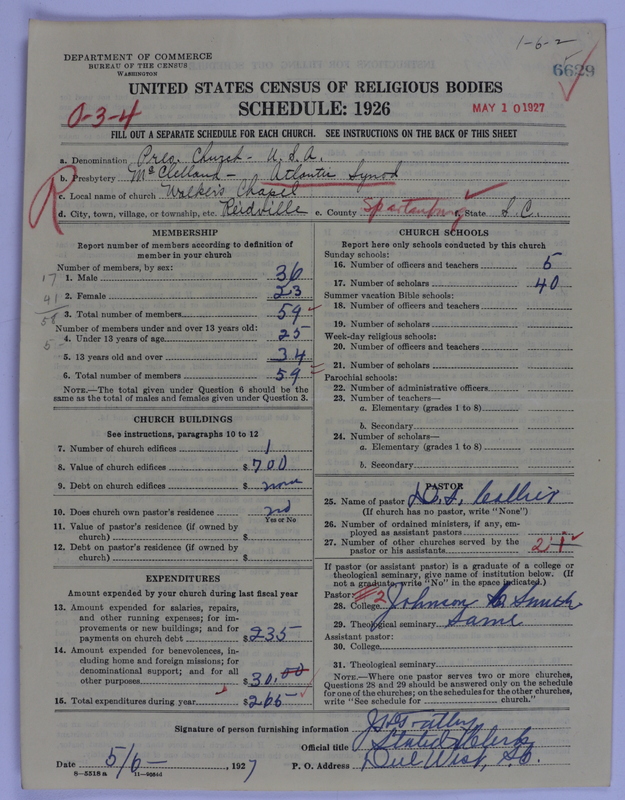 1-6-2
DEPARTMENT OF COMMERCE
BUREAU OF THE CENSUS
WASHINGTON
6629
UNITED STATES CENSUS OF RELIGIOUS BODIES
SCHEDULE: 1926
MAY 10 1927
0-3-4
FILL OUT A SEPARATE SCHEDULE FOR EACH CHURCH. SEE INSTRUCTIONS ON THE BACK OF THIS SHEET
a. Denomination Pres. Church - U.S.A.
b. Presbytery McClelland - Atlantic Synod
c. Local name of church Walker's Chapel
R
d. City, town, village, or township, etc. Reidville e. County Spartanburg f. State S.C.
MEMBERSHIP
Report number of members according to definition of member in your church
Number of members, by sex:
1. Male 36
17
2. Female 23
41
3. Total number of members 59
58
Number of members under and over 13 years old:
4. Under 13 years of age 25
5. 13 years old and over 34
6. Total number of members 59
NOTE.—The total given under Question 6 should be the same as the total of males and females given under Question 3.
CHURCH BUILDINGS
See instructions, paragraphs 10 to 12
7. Number of church edifices 1
8. Value of church edifices $700
9. Debt on church edifices $ none
10. Does church own pastor's residence no
Yes or No
11. Value of pastor's residence (if owned by church) $
12. Debt on pastor's residence (if owned by church) $
EXPENDITURES
Amount expended by your church during last fiscal year
13. Amount expended for salaries, repairs, and other running expenses; for improvements or new buildings; and for payments on church debt $235
14. Amount expended for benevolences, including home and foreign missions; for denominational support; and for all other purposes $30.00
15. Total expenditures during year $265
CHURCH SCHOOLS
Report here only schools conducted by this church
Sunday schools:
16. Number of officers and teachers 5
17. Number of scholars 40
Summer vacation Bible schools:
18. Number of officers and teachers
19. Number of scholars
Week-day religious schools:
20. Number of officers and teachers
21. Number of scholars
Parochial schools:
22. Number of administrative officers
23. Number of teachers—
a. Elementary (grades 1 to 8)
b. Secondary
24. Number of scholars—
a. Elementary (grades 1 to 8)
b. Secondary
PASTOR
25. Name of pastor Collier
(If church has no pastor, write "None")
26. Number of ordained ministers, if any, employed as assistant pastors
27. Number of other churches served by the pastor or his assistants
If pastor (or assistant pastor) is a graduate of a college or theological seminary, give name of institution below. (If not a graduate, write "No" in the space indicated.)
Pastor: 2
28. College Johnson C Smith
29. Theological seminary Same
Assistant pastor:
30. College
31. Theological seminary
NOTE.—Where one pastor serves two or more churches, Questions 28 and 29 should be answered only on the schedule for one of the churches; on the schedules for the other churches, write "See schedule for church."
Signature of person furnishing information
Official title Stated Clerk
Date 5/6 - , 1927 P. O. Address Due West, S.C.
8—5518a